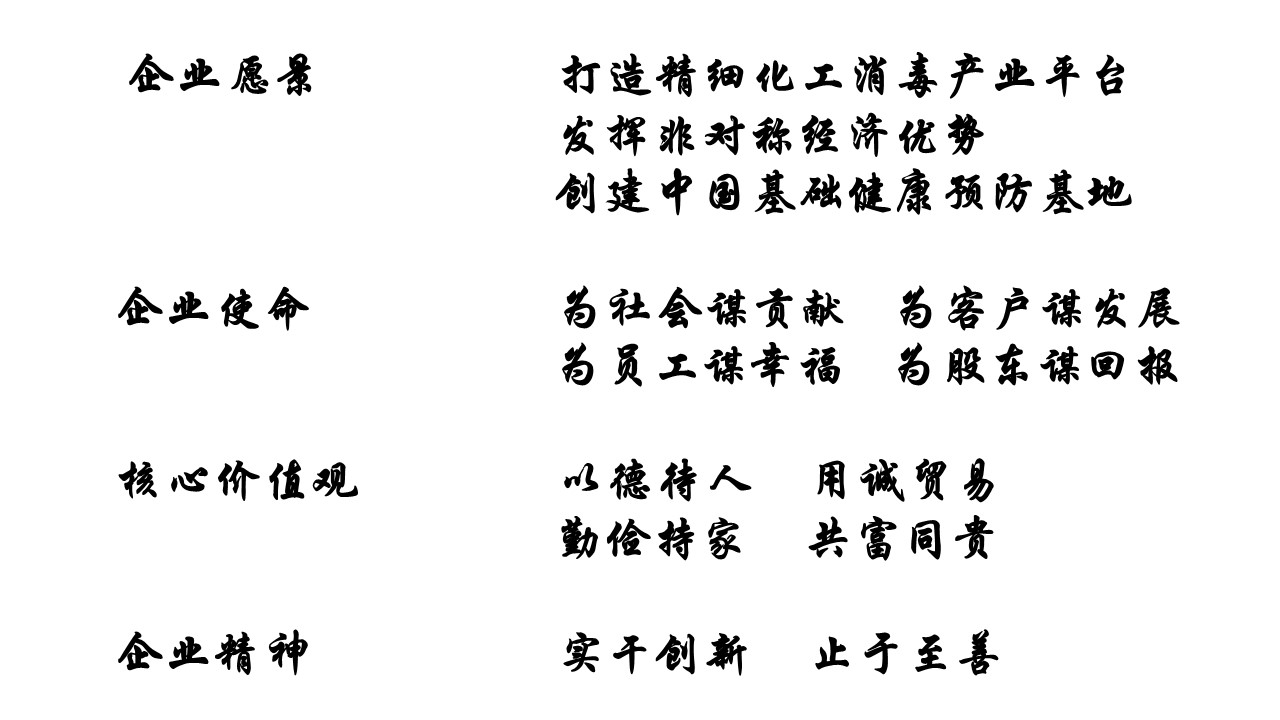 企业愿景 打造精细化工消毒产业平台
发挥非对称经济优势
创建中国基础健康预防基地
企业使命 为社会谋贡献 为客户谋发展
为员工谋幸福 为股东谋回报
核心价值观 以德待人 用诚贸易
勤俭持家 共富同贵
企业精神 实干创新 止于至善